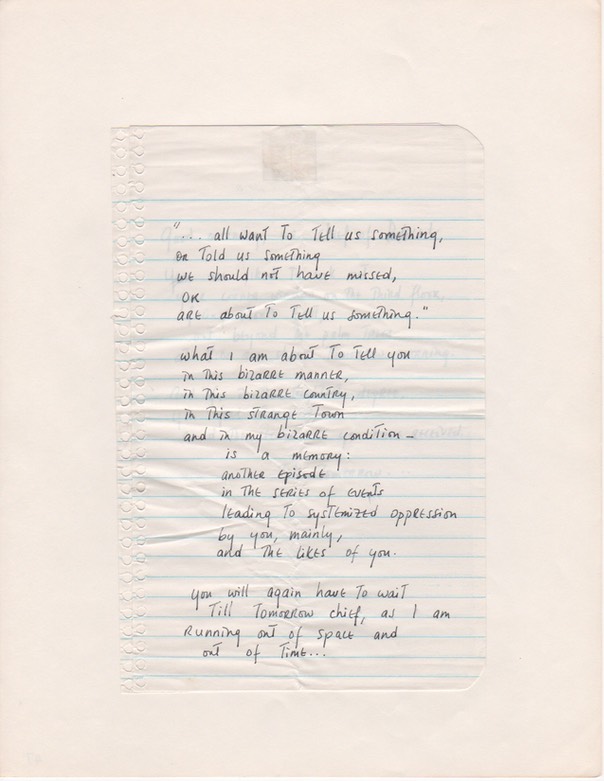 "... all want to tell us something,
or told us something
we should not have missed,
or
are about to tell us something."
what I am about to tell you
in this bizarre manner,
in this bizarre country,
in this strange town
and in my bizarre condition –
is a memory:
another episode
in the series of events
leading to systemized oppression
by you, mainly,
and the likes of you.
you will again have to wait
till tomorrow chief, as I am
running out of space and
out of time...